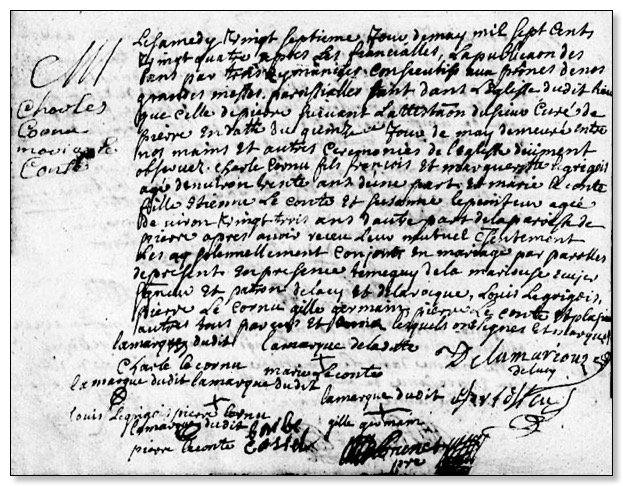 Charles
Cornu
Marie
Conte
Le samedy Vingt septieme Jour de may mil sept Cents
Vingt quatre apres les fiancialles, La publicaon des
bans par trois dimanches Consecutifs aux prônes de nos
grandes messes paroissialles tant dans L'eglise dudit lieu
que Celle de pierre suivant L'attestaon du sieur Curé de
pierre En datte du quinze Jour de may demeurée entre
nos mains et autres Ceremonies de l'eglise duement
observez. Charle Cornu fils françois Et marguerite Legrigeois
agé denviron trente ans d'une part, et marie le conte
fille Etienne Le Conte et Susanne agée
de viron Vingt trois ans d'autre part de la paroisse de
pierre apres avoir receu Leur mutuel Consentement
Les ay solennellement Conjoints En mariage par parolles
de presents En presence de la
et patron de lacy et de larocque, Louis Legrigeois,
pierre Le Cornu gille germain pierre Le Conte et plusieurs
autres tous parents et amis Lesquels ont signés et marqués
la marque dudit la marque de ladite
Charle le cornu marie le conte
Delamarious
de lacy
la marque dudit la marque dudit la marque dudit
Louis Legrigeois pierre Cornu gille germain
la marque dudit
pierre le conte
pre